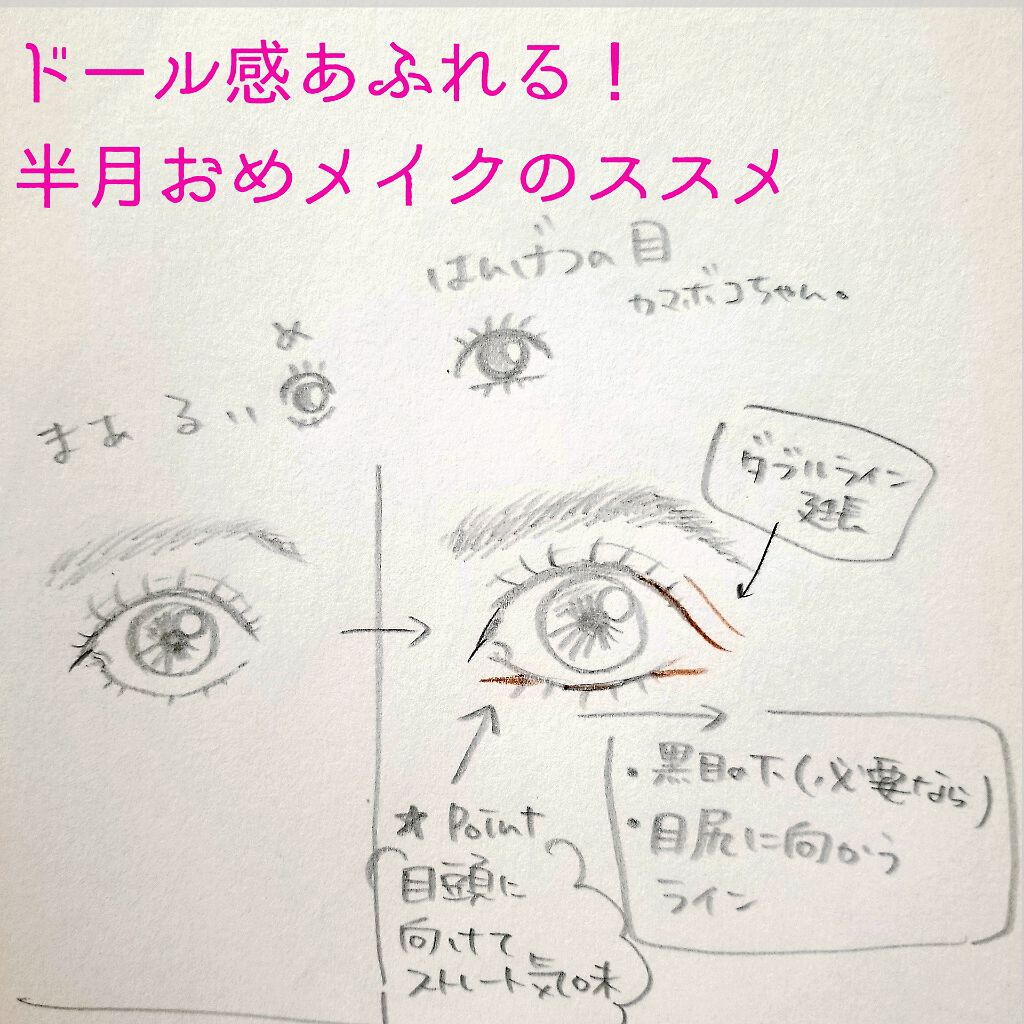 ドール感あふれる!
半月おめメイクのススメ
はんげつの目
カマボコちゃん。
め
まあるい
ダブルライン
延長
・黒目の下(必要なら)
・目尻に向かう
ライン
☆Point
目頭に
向けて
ストレート気味